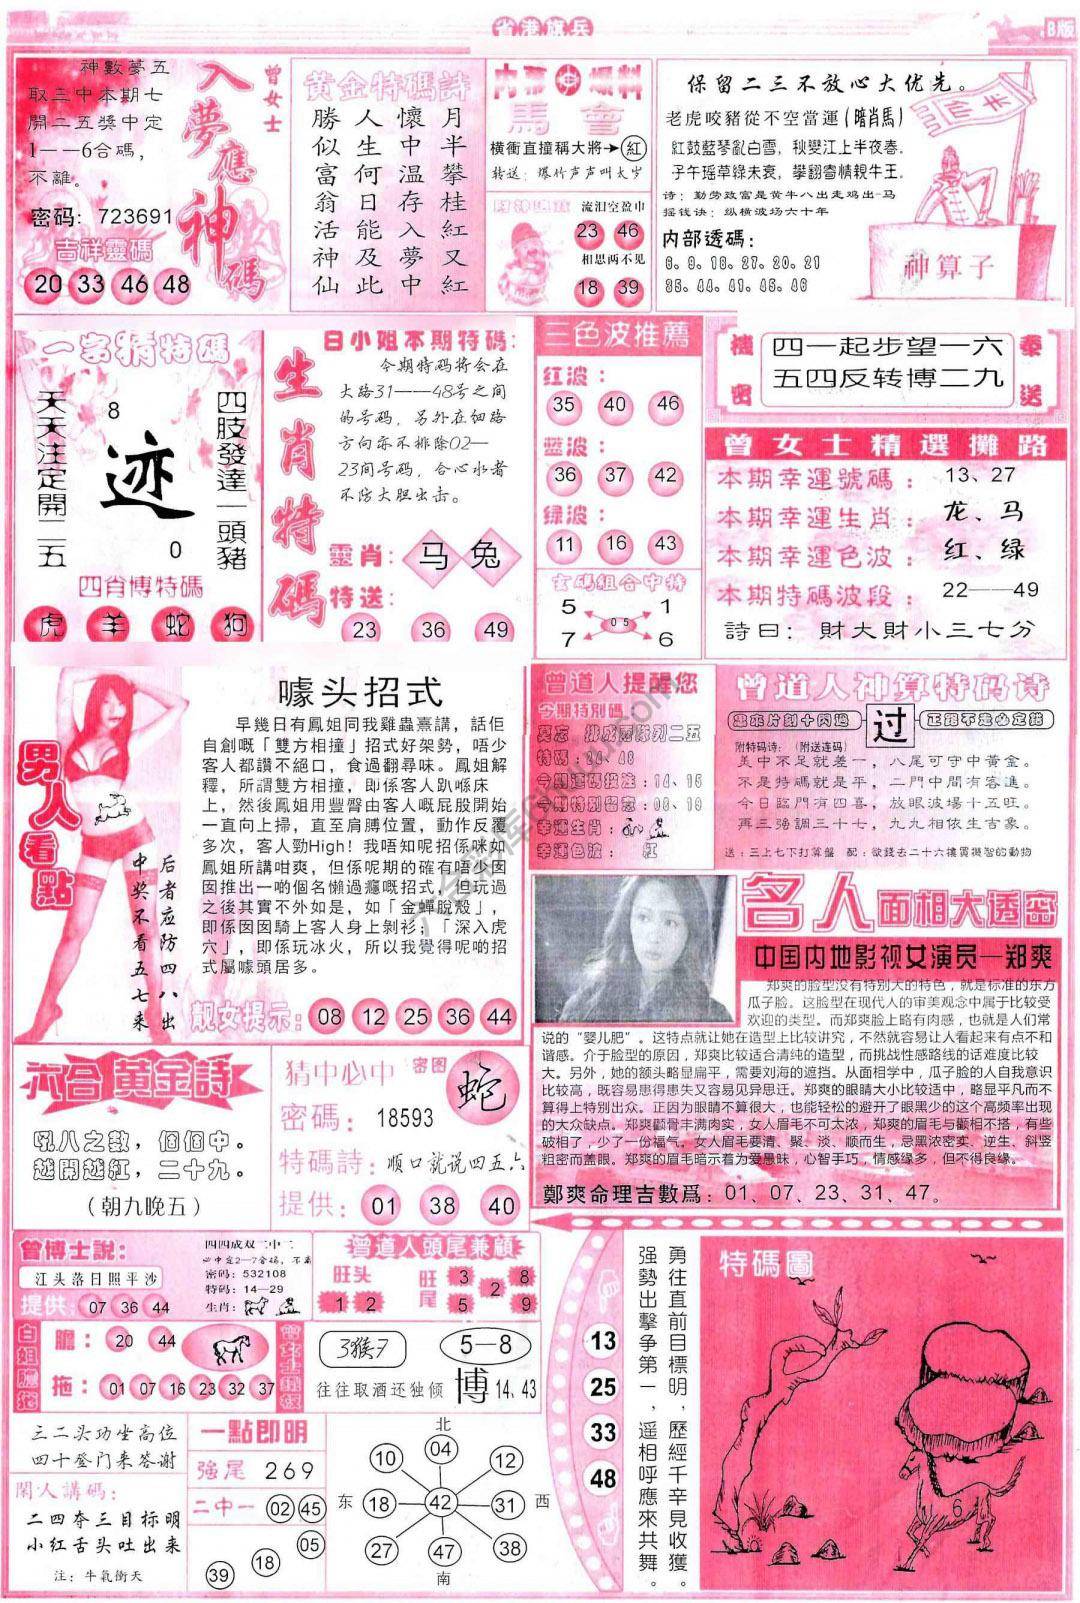 省港旗兵
B版
神數夢五
取三中本期七
開二五獎中定
1——6合碼，
不離。
密码：723691
吉祥靈碼
20 33 46 48
曾女士
入夢應神碼
黄金特碼詩
月半攀桂紅又紅
懷中温存入夢中
人生何日能及此
勝似富翁活神仙
内幕爆料
馬會
橫衝直撞稱大將→紅
转送：爆竹声声叫太岁
流泪空盈巾
23 46
相思两不见
18 39
保留二三不放心大优先。
老虎咬豬從不空當運(暗肖馬)
紅鼓藍琴亂白雪，秋變江上半夜春。
子午瑶草綠未衰，攀翻寄情親牛王。
诗：勤劳致富是黄牛八出走鸡出-马
摇钱诀：纵横波场六十年
内部透碼：
神算子
一字猜特碼
天天注定開二五
8
迹
0
四肢發達一頭豬
四肖博特碼
虎 羊 蛇 狗
生肖特碼
白小姐本期特碼：
今期特码将会在
大路31——48号之间
的号码，另外在细路
方向亦不排除02—
23间号码，合心水者
不防大胆出击。
靈肖：马 兔
特送：
23 36 49
三色波推薦
红波：
35 40 46
藍波：
36 37 42
绿波：
11 16 43
玄碼組合中特
5 1
05
7 6
四一起步望一六
五四反转博二九
曾女士精選攤路
本期幸運號碼：13、27
本期幸運生肖：龙、马
本期幸運色波：红、绿
本期特碼波段：22——49
詩曰：財大財小三七分
男人看點
中奖不看五七来
后者应防四八出
噱头招式
早幾日有鳳姐同我雞蟲熹講，話佢
自創嘅「雙方相撞」招式好架勢，唔少
客人都讚不絕口，食過翻尋味。鳳姐解
釋，所謂雙方相撞，即係客人趴喺床
上，然後鳳姐用豐臀由客人嘅屁股開始
一直向上掃，直至肩膊位置，動作反覆
多次，客人勁High！我唔知呢招係咪如
鳳姐所講咁爽，但係呢期的確有唔少囡
囡推出一啲個名懶過癮嘅招式，但玩過
之後其實不外如是，如「金蟬脫殼」，
即係囡囡騎上客人身上剝衫；「深入虎
穴」，即係玩冰火，所以我覺得呢啲招
式屬噱頭居多。
靓女提示：08 12 25 36 44
曾道人提醒您
今期特别碼：
幸運生肖：
幸運色波：紅
曾道人神算特码诗
过
附特码诗：（附送连码）
美中不足就差一，八尾可守中黄金。
不是特碼就是平，二門中間有客進。
今日臨門有四喜，放眼波場十五旺。
再三强調三十七，九九相依生吉象。
送：三上七下打算盤 配：欲錢去二十六樓買機智的動物
名人面相大透密
中国内地影视女演员—郑爽
郑爽的脸型没有特别大的特色，就是标准的东方
瓜子脸。这脸型在现代人的审美观念中属于比较受
欢迎的类型。而郑爽脸上略有肉感，也就是人们常
说的“婴儿肥”。这特点就让她在造型上比较讲究，不然就容易让人看起来有点不和
谐感。介于脸型的原因，郑爽比较适合清纯的造型，而挑战性感路线的话难度比较
大。另外，她的额头略显扁平，需要刘海的遮挡。从面相学中，瓜子脸的人自我意识
比较高，既容易患得患失又容易见异思迁。郑爽的眼睛大小比较适中，略显平凡而不
算得上特别出众。正因为眼睛不算很大，也能轻松的避开了眼黑少的这个高频率出现
的大众缺点。郑爽颧骨丰满肉实，女人眉毛不可太浓，郑爽的眉毛与颧相不搭，有些
破相了，少了一份福气。女人眉毛要清、聚、淡、顺而生，忌黑浓密实、逆生、斜竖
粗密而盖眼。郑爽的眉毛暗示着为爱愚昧，心智手巧，情感缘多，但不得良缘。
鄭爽命理吉數爲：01、07、23、31、47。
六合黄金詩
吼八之數，個個中。
越開越紅，二十九。
（朝九晚五）
猜中必中 密图
蛇
密碼：18593
特碼詩：顺口就说四五六
提供：01 38 40
曾博士說：
江头落日照平沙
提供：07 36 44
四四成双二中二
密码：532108
特码：14—29
生肖：
曾道人頭尾兼顧
旺头
1 2
旺尾
3 8
2
5 9
膽：20 44
拖：01 07 16 23 32 37
3猴7
5—8
往往取酒还独倾
博 14、43
三二头功坐高位
四十登门来答谢
閑人講碼：
二四夺三目标明
小红舌头吐出来
注：牛氣衝天
一點即明
強尾 269
二中一 02 45
05
18
39
北
04
10 12
东 18 42 31 西
27 47 38
南
13
25
33
48
勇往直前目標明，歷經千辛見收獲。
强勢出擊争第一，遥相呼應來共舞。
特碼圖
6